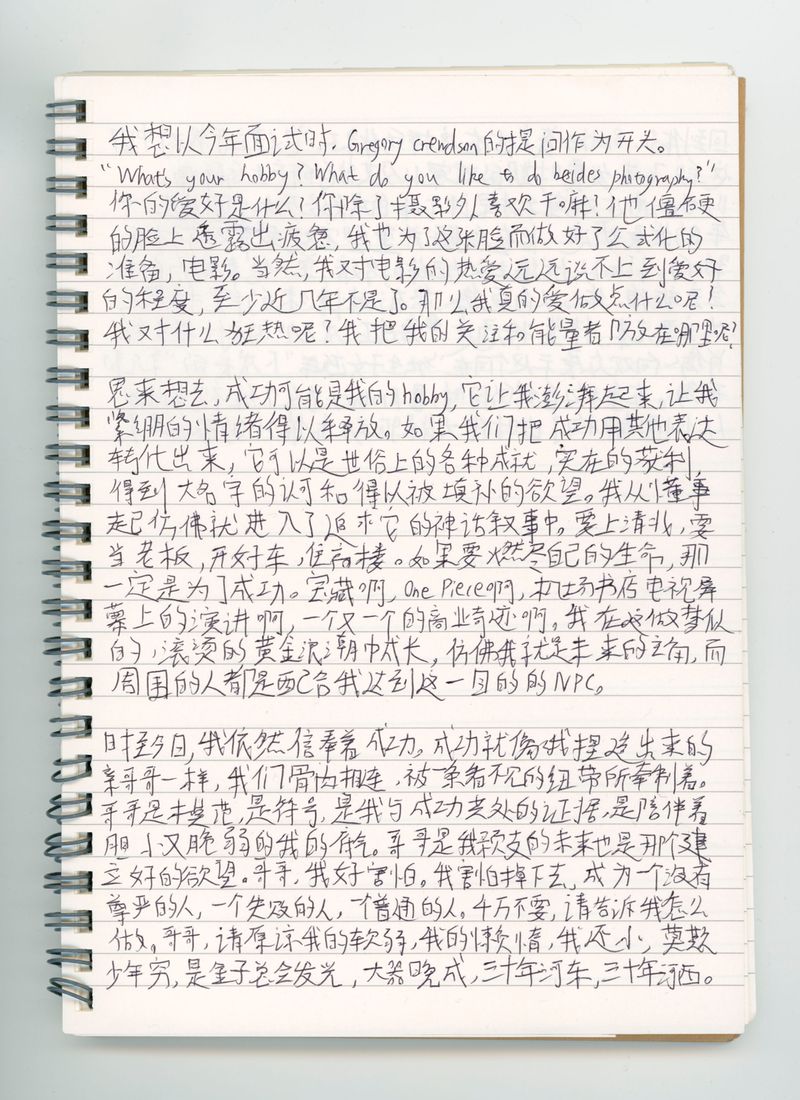 我想以今年面试时. Gregory Crendson的提问作为开头。
"What's your hobby? What do you like to do besides photography?"
你的爱好是什么?你除了摄影以喜欢干嘛?他僵硬
的脸上透露出疲惫,我也为了这张脸而做好了公式化的
准备,电影。当然,我对电影的热爱远远谈不上到爱好
的程度,至少近几年不是了。那么我真的爱做点什么呢?
我对什么狂热呢?我把我的关注和能量都放在哪里呢?
思来想去,成功可能是我的hobby,它让我澎湃起来,让我
紧绷的情绪得以释放。如果我们把成功用其他表达
转化出来,它可以是世俗上的各种成就,实在的获利,
得到大名字的认可和得以被填补的欲望。我从懂事
起仿佛就进入了追求它的神话叙事中。要上清北,要
当老板,开好车,住高楼。如果要燃尽自己的生命,那
一定是为了成功。宝藏啊,One Piece啊,机场书店电视屏
幕上的演讲啊,一个又一个的商业奇迹啊。我在这做梦似
的,滚烫的黄金浪潮中成长,仿佛我就是未来的主角,而
周围的人都是配合我达到这一目的的NPC。
时至今日,我依然信奉着成功。成功就像我捏造出来的
亲哥哥一样,我们骨肉相连,被一条看不见的纽带所牵制着。
哥哥是模范,是符号,是我与成功共处的证据,是陪伴着
胆小又脆弱的我的底气。哥哥是我预支的未来也是那个建
立好的欲望。哥哥,我好害怕。我害怕掉下去,成为一个没有
尊严的人,一个失败的人,一个普通的人。千万不要,请告诉我怎么
做。哥哥,请原谅我的软弱,我的懒惰,我还小,莫欺
少年穷,是金子总会发光,大器晚成,三十年河东,三十年河西。